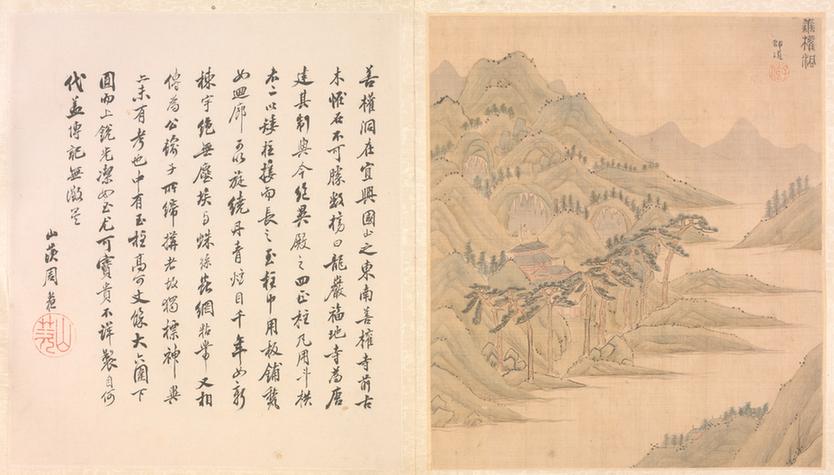 善權洞在宜興國山之東南善權寺前古
木怪石不可勝數榜曰龍巖福地寺為唐
建其制與今絕異殿之四正柱凡用斗栱
右二以矮柱接而長之玉柱中用板鋪
如迴廊可以旋繞丹青炫目千年如新
棟宇絕無塵埃與蛛絲蟲網粘帶又相
傳為公輸子所締搆者故獨標神異
亦未有考也中有玉柱高可丈餘大六圍下
圓而上銳光潔如玉尤可寶貴不詳製自何
代蓋傳記無徵矣
山茨周
善權洞
邵